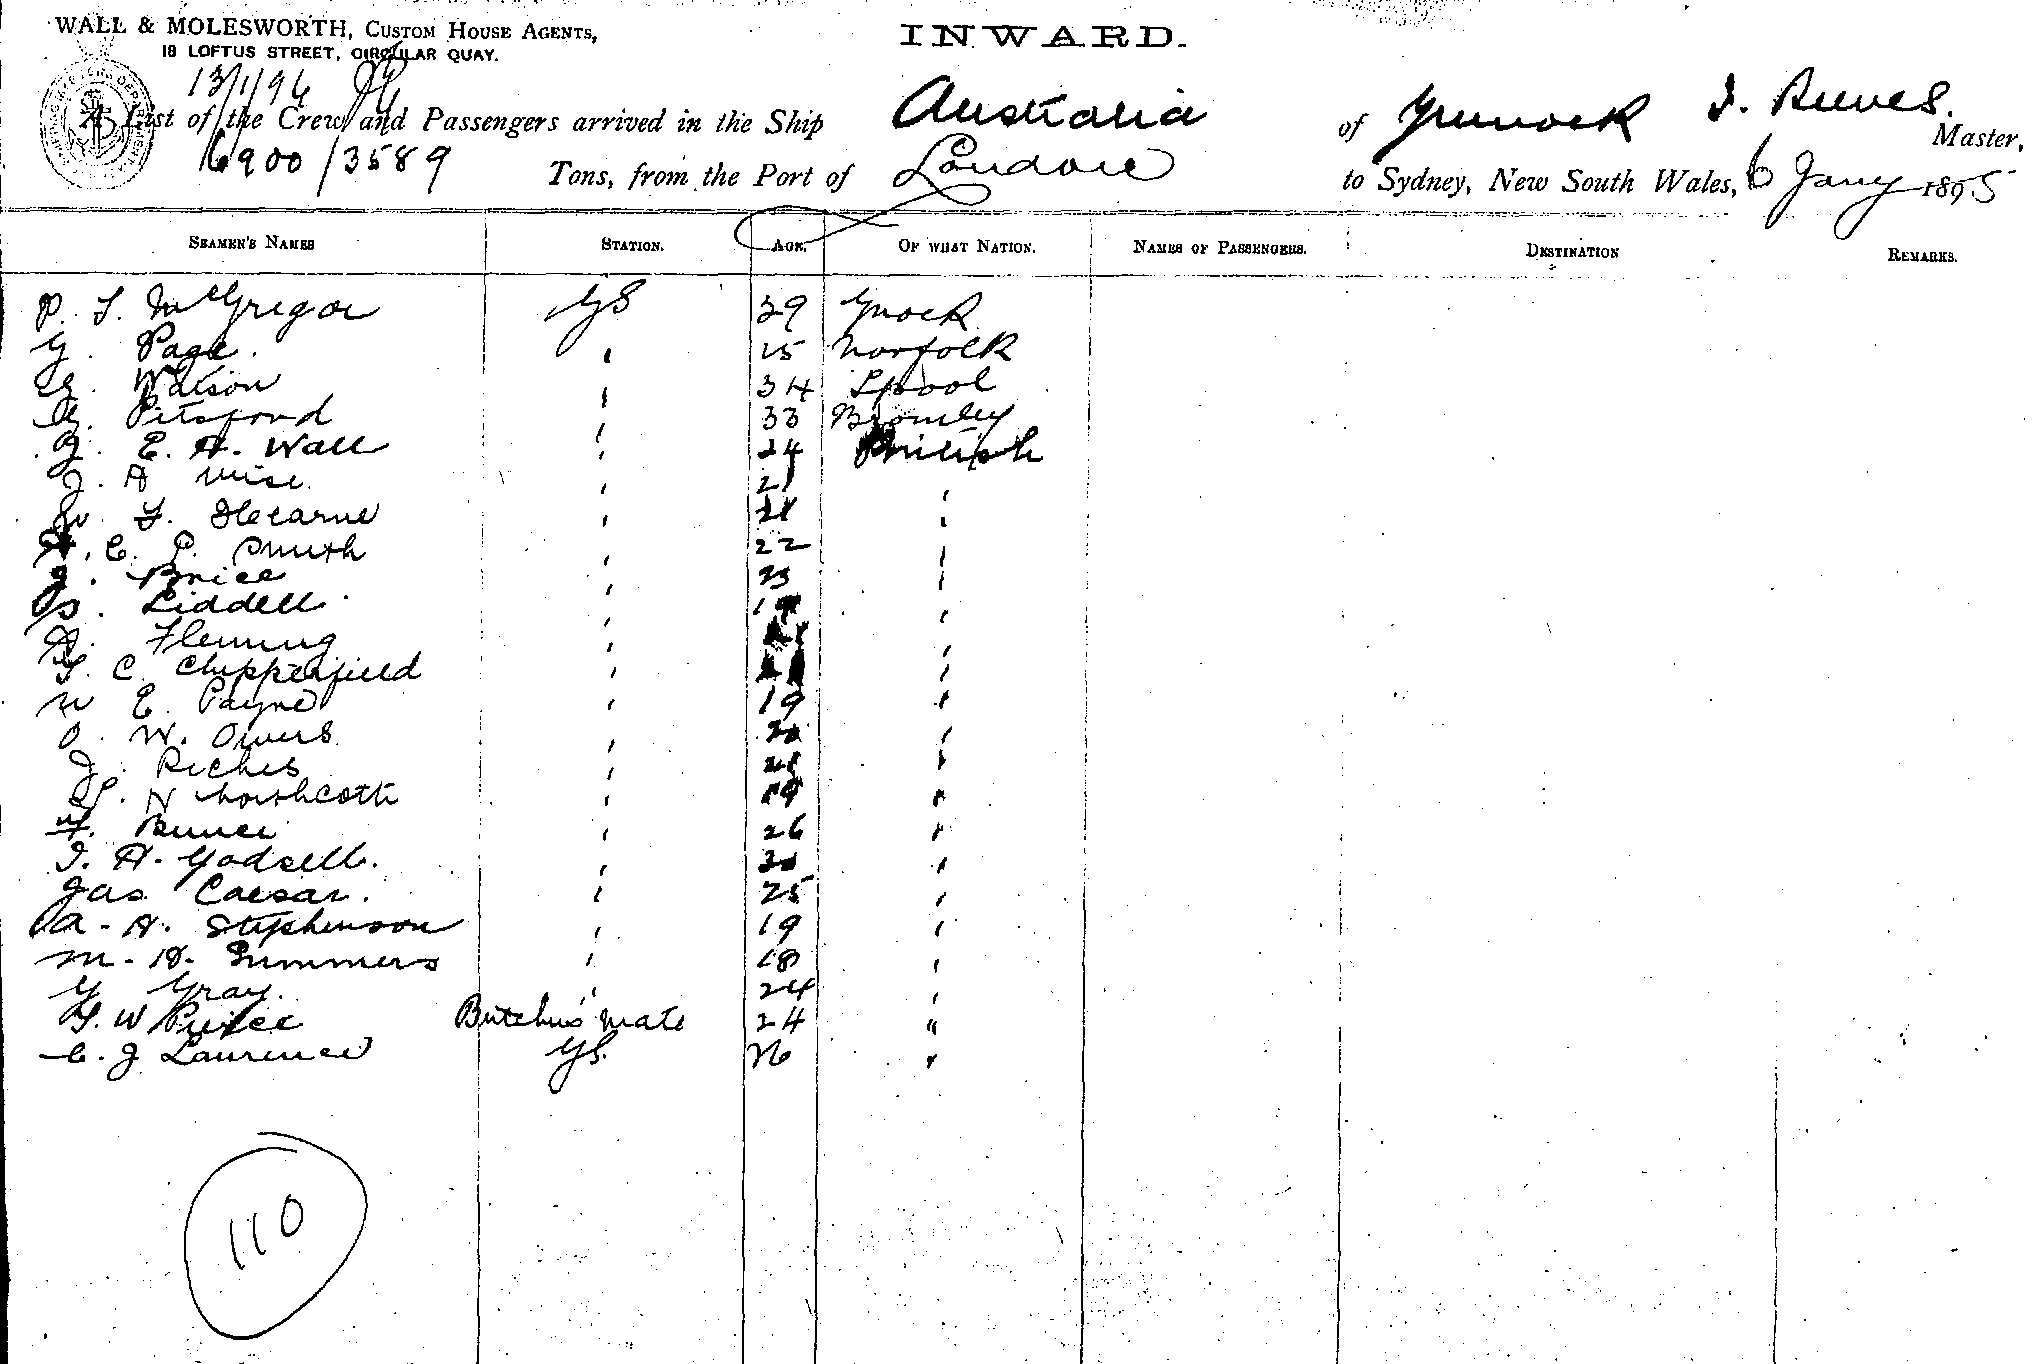 WALL & MOLESWORTH, CUSTOM HOUSE AGENTS,
18 LOFTUS STREET, CIRCULAR QUAY.
INWARD.
13/1/96
A List of the Crew and Passengers arrived in the Ship Australia of Greenock J. Reeves. Master,
6900/3589 Tons, from the Port of London to Sydney, New South Wales, 6 Jany 1895
SEAMEN'S NAMES STATION. AGE. OF WHAT NATION. NAMES OF PASSENGERS. DESTINATION REMARKS.
P. S. McGregor GS 39 Gnock
G. Page. " 25 Norfolk
G. Watson " 34 Lpool
G. Pitsford " 33 Bromley
G. E. A. Wall " 24 British
J. A Wise. " 21 "
W. F. Hearne " 21 "
A. C. P. Smith " 22 "
J. Brice " 23 "
Liddell " 19 "
A. Fleming " "
C. Chipperfield " "
W E. Payne " 19 "
O. W. Owers " "
J. Riches " 21 "
H Northcott " 19 "
F. Bunce " 26 "
J. A. Godsell. " "
Jas Caesar. " 25 "
A. H. Stephenson " 19 "
M. H. Summers " 18 "
G Gray. " 24 "
G. W Peirce Butchers mate 24 "
C. J Laurence GS. 26 "
110